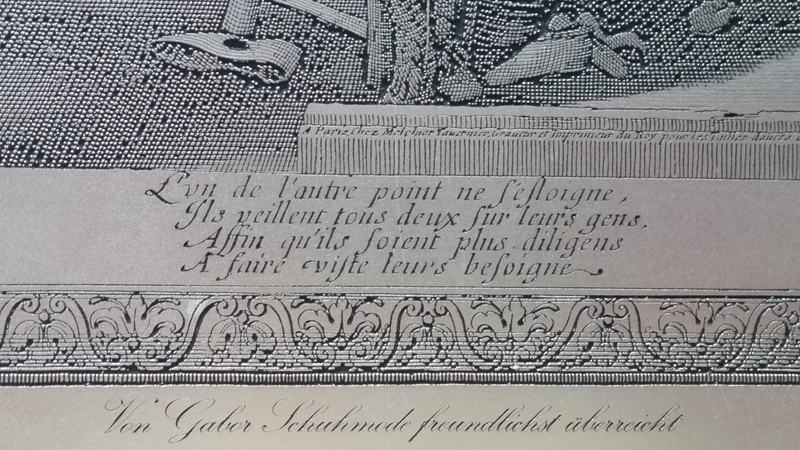 A Paris, Chez Melchior Tauernier, Graueur et Imprimeur du Roy pour les Tailles douces
L'vn de l'autre point ne s'esloigne,
Ils veillent tous deux sur leurs gens,
Affin qu'ils soient plus diligens
A faire viste leurs besoigne
Von Gabor Schuhmode freundlichst überreicht